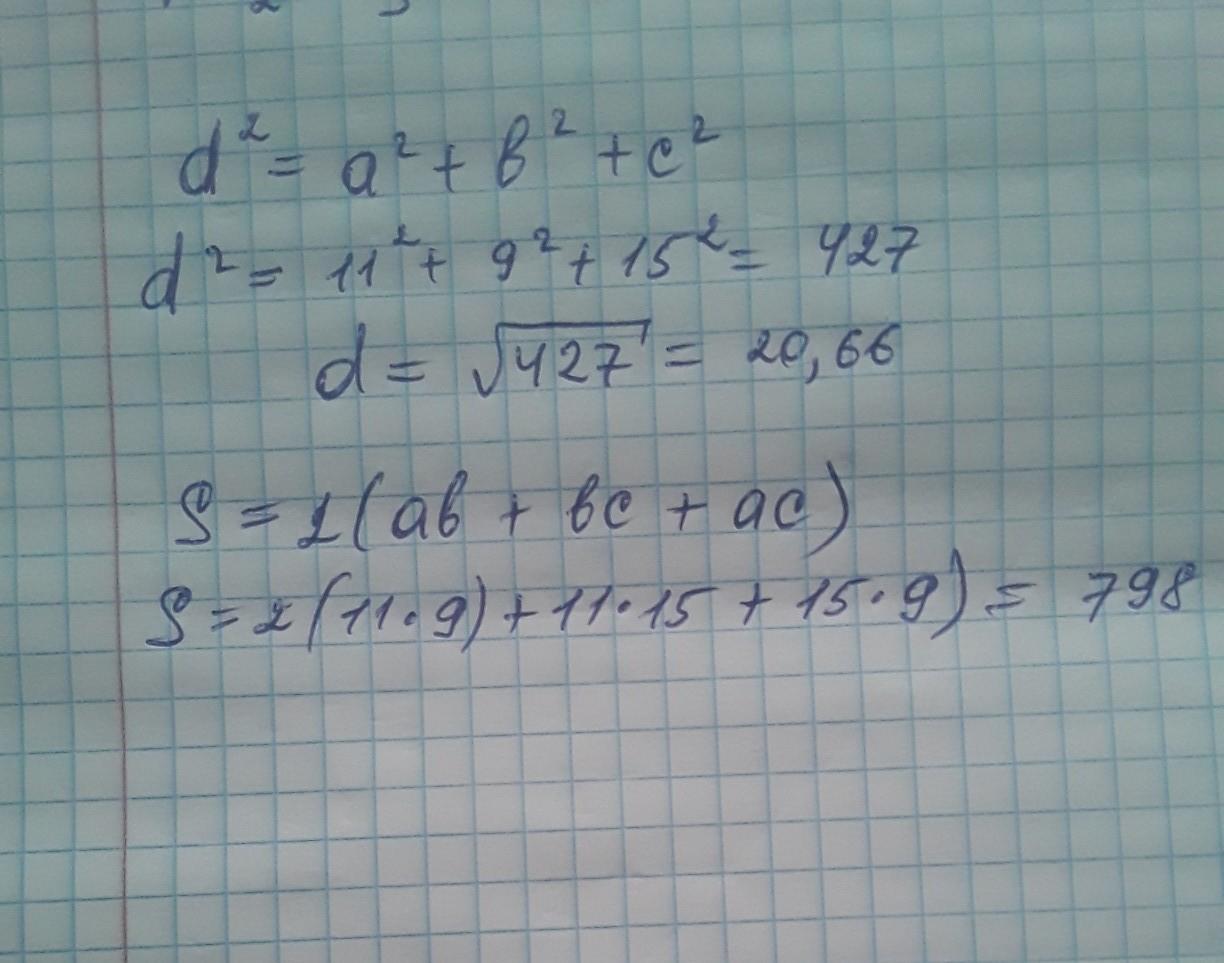 d² = a² + b² + c²
d² = 11² + 9² + 15² = 427
d = √427 = 20,66
S = 2(ab + bc + ac)
S = 2(11·9) + 11·15 + 15·9) = 798